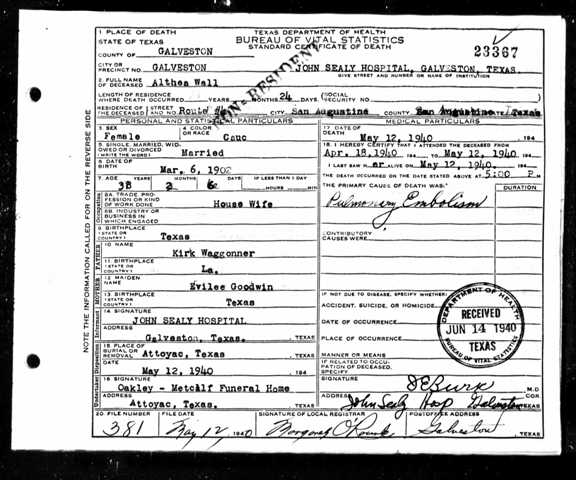 1 PLACE OF DEATH
STATE OF TEXAS
COUNTY OF GALVESTON
TEXAS DEPARTMENT OF HEALTH
BUREAU OF VITAL STATISTICS
STANDARD CERTIFICATE OF DEATH
23367
CITY OR PRECINCT NO. GALVESTON
JOHN SEALY HOSPITAL, GALVESTON, TEXAS.
GIVE STREET AND NUMBER OR NAME OF INSTITUTION
NON-RESIDENT
2 FULL NAME OF DECEASED Althea Wall
LENGTH OF RESIDENCE WHERE DEATH OCCURRED YEARS MONTHS 24 DAYS.
SOCIAL SECURITY NO.
RESIDENCE OF THE DECEASED STREET AND NO. Route CITY San Augustine COUNTY San Augustine Texas
PERSONAL AND STATISTICAL PARTICULARS
MEDICAL PARTICULARS
3 SEX Female
4 COLOR OR RACE Cauc
17 DATE OF DEATH May 12, 1940 194
5 SINGLE, MARRIED, WIDOWED OR DIVORCED Married
18. I HEREBY CERTIFY THAT I ATTENDED THE DECEASED FROM
Apr. 18, 1940 TO May 12, 1940 194
6 DATE OF BIRTH Mar. 6, 190
I LAST SAW ALIVE ON May 12, 1940 194
THE DEATH OCCURRED ON THE DATE STATED ABOVE AT 5:00 P M
7 AGE YEARS MONTHS DAYS IF LESS THAN 1 DAY
38 2 6 HOURS MIN
THE PRIMARY CAUSE OF DEATH WAS: DURATION
Pulmonary Embolism
8A TRADE, PROFESSION OR KIND OF WORK DONE House Wife
8B INDUSTRY OR BUSINESS IN WHICH ENGAGED
CONTRIBUTORY CAUSES WERE
9 BIRTHPLACE (STATE OR COUNTRY) Texas
FATHER
10 NAME Kirk Waggonner
11 BIRTHPLACE (STATE OR COUNTRY) La.
MOTHER
12 MAIDEN NAME Evilee Goodwin
13 BIRTHPLACE (STATE OR COUNTRY) Texas
IF NOT DUE TO DISEASE, SPECIFY WHETHER:
ACCIDENT, SUICIDE, OR HOMICIDE
DATE OF OCCURRENCE
PLACE OF OCCURRENCE
MANNER OR MEANS
IF RELATED TO OCCUPATION OF DECEASED, SPECIFY
DEPARTMENT OF HEALTH
RECEIVED
JUN 14 1940
TEXAS
BUREAU OF VITAL STATISTICS
14 SIGNATURE JOHN SEALY HOSPITAL
ADDRESS Galveston, Texas. TEXAS
15 PLACE OF BURIAL OR REMOVAL Attoyac, Texas TEXAS
DATE May 12, 1940 194
16 SIGNATURE Oakley - Metcalf Funeral Home
ADDRESS Attoyac, Texas. TEXAS
SIGNATURE M.D.
ADDRESS John Sealy Hosp Galveston TEXAS
20 FILE NUMBER FILE DATE SIGNATURE OF LOCAL REGISTRAR POSTOFFICE ADDRESS
381 May 12, 1940 Galveston, TEXAS
NOTE THE INFORMATION CALLED FOR ON THE REVERSE SIDE